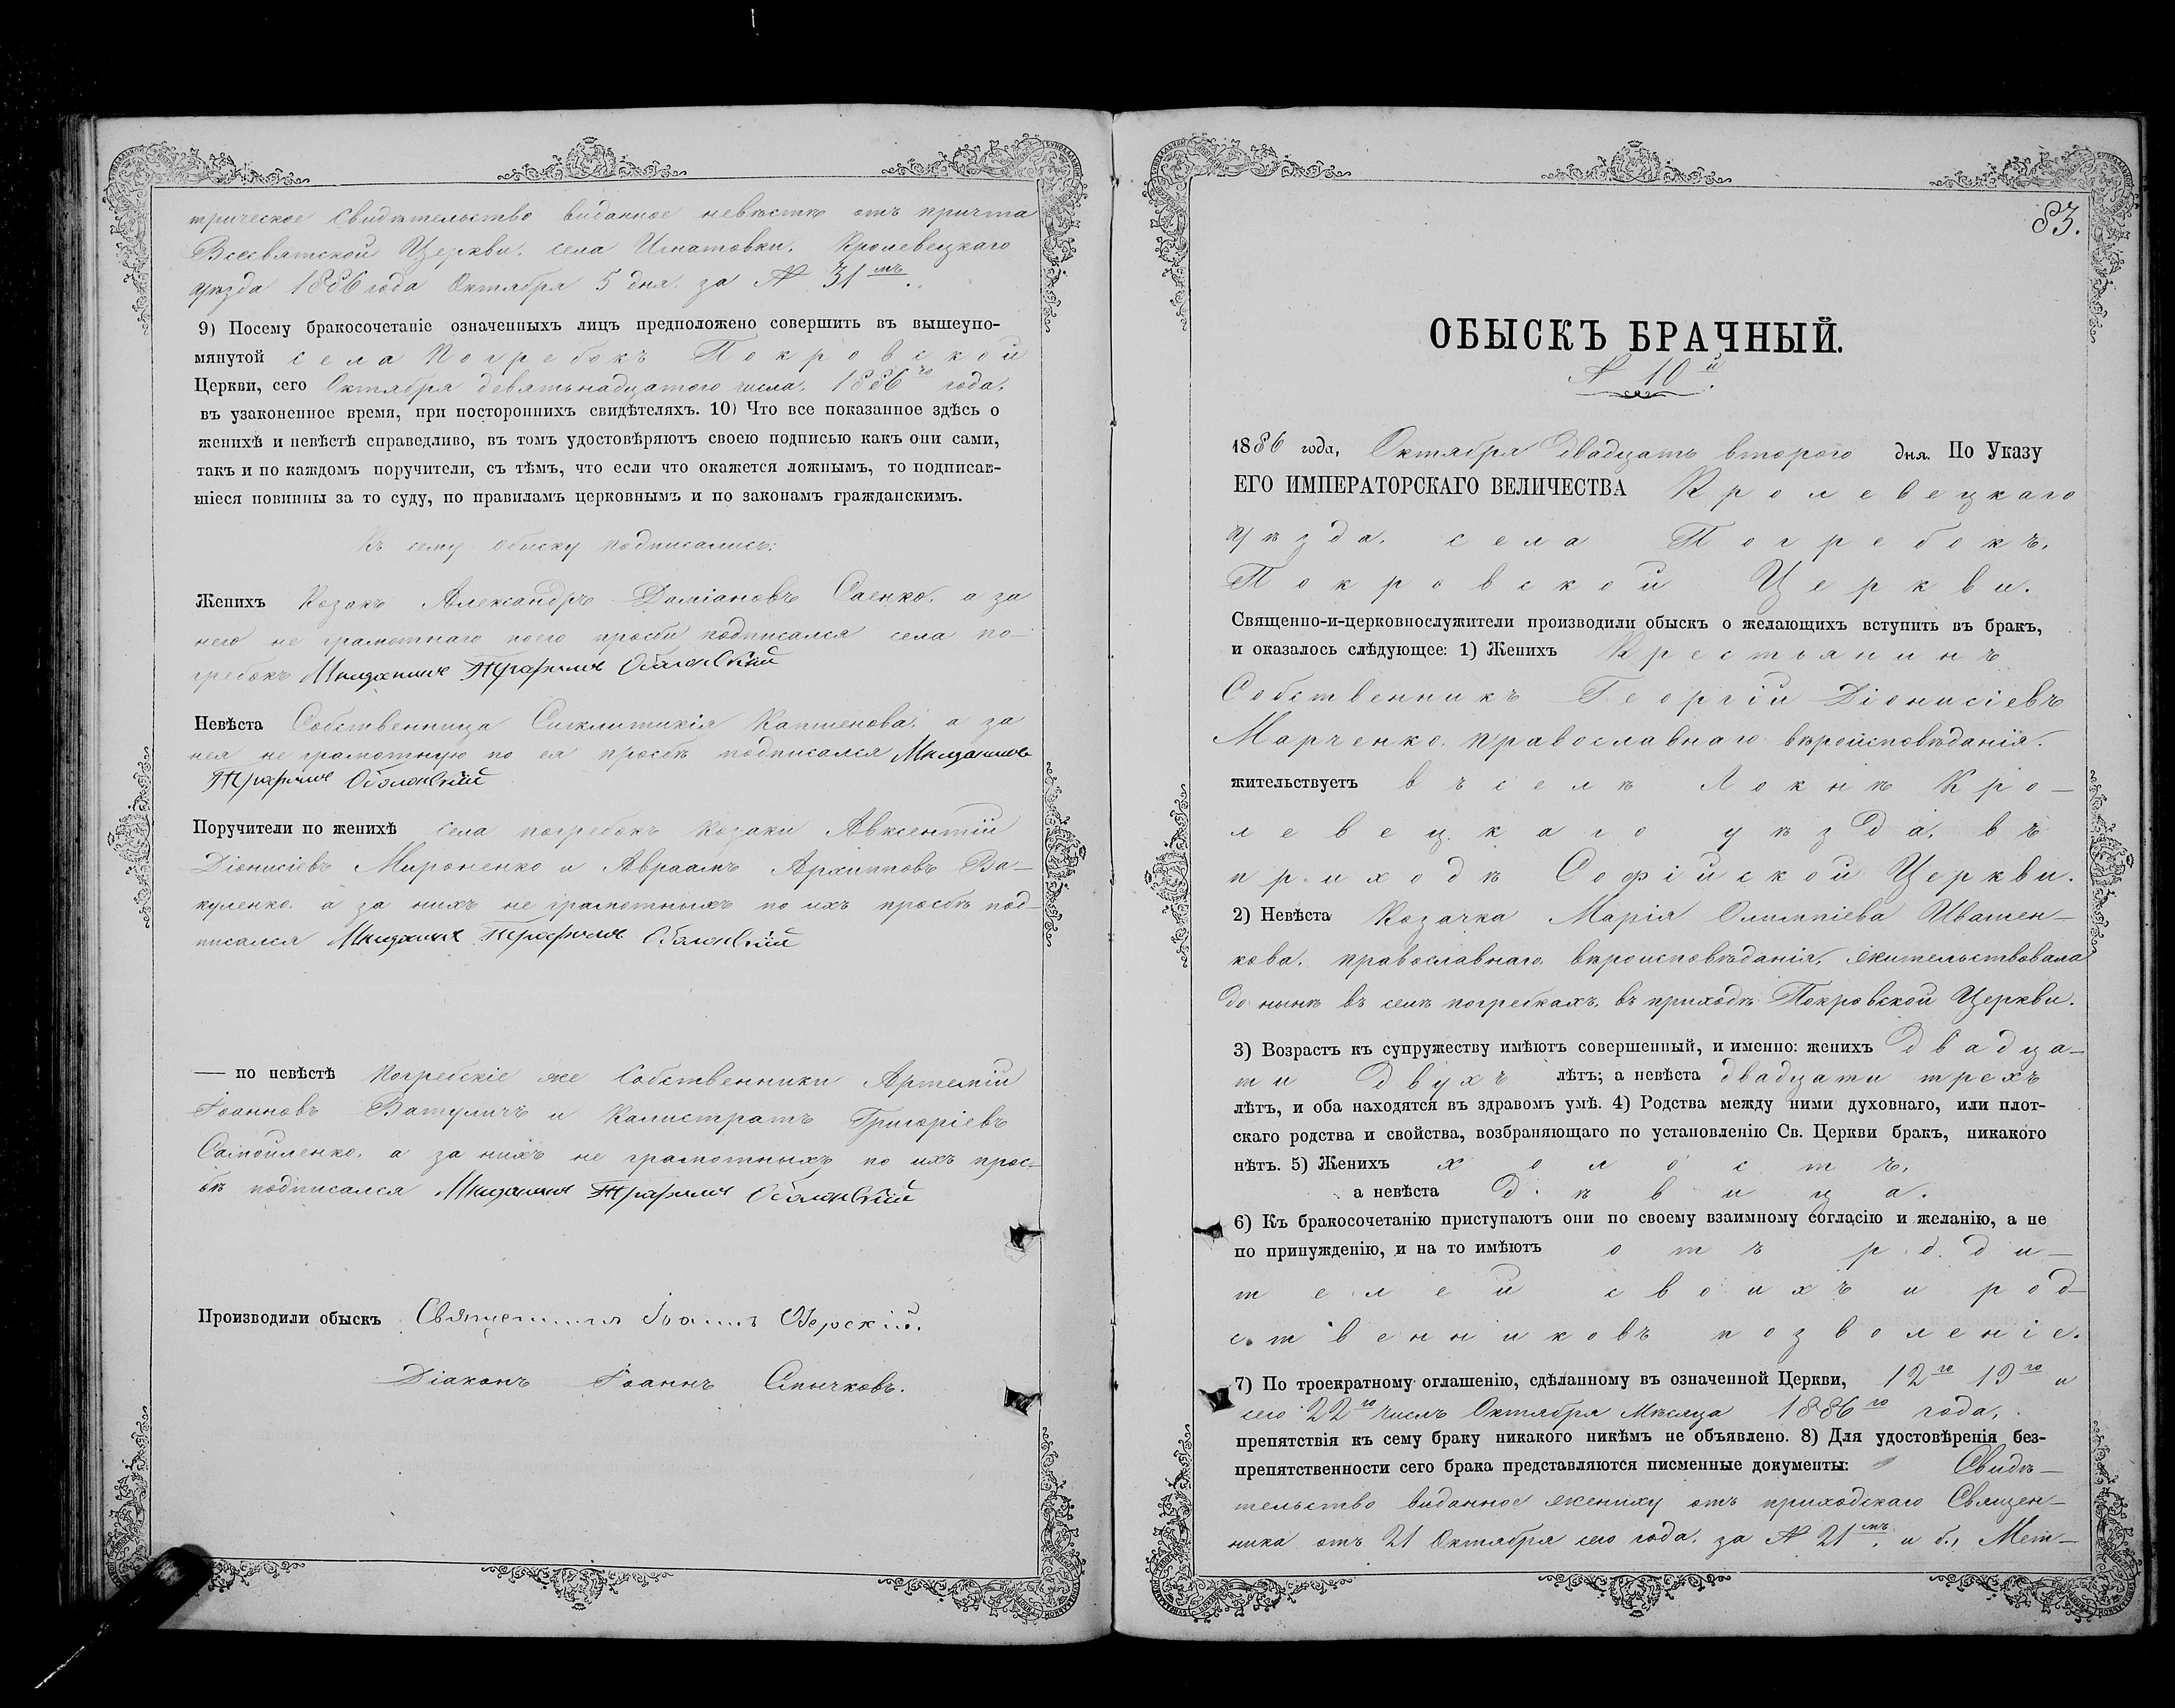 трическое свидѣтельство виданное невѣстѣ отъ причта
Всесвятской Церкви, села Игнатовки, Кролевецкаго
уѣзда 1886 года Октября 5 дня. за № 31мъ.
9) Посему бракосочетаніе означенныхъ лицъ предположено совершить въ вышеупо-
мянутой села Погребокъ Покровской
Церкви, сего Октября девятьнадцатого числа, 1886го года,
въ узаконенное время, при постороннихъ свидѣтеляхъ. 10) Что все показанное здѣсь о
женихѣ и невѣстѣ справедливо, въ томъ удостовѣряютъ своею подписью какъ они сами,
такъ и по каждомъ поручители, съ тѣмъ, что если что окажется ложнымъ, то подписав-
шіеся повинны за то суду, по правиламъ церковнымъ и по законамъ гражданскимъ.
Къ сему обыску подписались:
Женихъ Козакъ Александръ Даміановъ Саенко, а за
него не грамотнаго просби подписался села по-
гребокъ Оболонскій
Невѣста Собственница Сигклитикія а за
нея не грамотную по ея просбѣ подписался
Оболонскій
Поручители по женихѣ села погребокъ козаки Авксентій
Діонисіевъ Мироненко и Авраамъ Архиповъ Ва-
куленко, а за нихъ не грамотныхъ по ихъ просбѣ под-
писался Оболонскій
— по невѣстѣ Погребскіе же собственники Артемій
Іоанновъ Ватуличъ и Калистратъ Григоріевъ
Самойленко, а за нихъ не грамотныхъ по ихъ прос-
бѣ подписался Оболонскій
Производили обыскъ Священникъ Іоаннъ
Діаконъ Іоаннъ Слычковъ.
83.
ОБЫСКЪ БРАЧНЫЙ.
№ 10й.
1886 года, Октября двадцать второго дня. По Указу
ЕГО ИМПЕРАТОРСКАГО ВЕЛИЧЕСТВА Кролевецкаго
уѣзда, села Погребокъ,
Покровской Церкви.
Священно-и-церковнослужители производили обыскъ о желающихъ вступить въ бракъ,
и оказалось слѣдующее: 1) Женихъ Крестьянинъ
Собственникъ Георгій Діонисіевъ
Марченко, православнаго вѣроисповѣданія.
жительствуетъ въ селѣ Локнѣ Кро-
левецкаго уѣзда, въ
приходѣ Софійской Церкви.
2) Невѣста Козачка Марія Олимпіева Ивашен-
кова, православнаго вѣроисповѣданія, жительствовала
до нынѣ въ селѣ погребкахъ, въ приходѣ Покровской Церкви.
3) Возрастъ къ супружеству имѣютъ совершенный, и именно: женихъ двадца-
ти двухъ лѣтъ; а невѣста двадцати трехъ
лѣтъ, и оба находятся въ здравомъ умѣ. 4) Родства между ними духовнаго, или плот-
скаго родства и свойства, возбраняющаго по установленію Св. Церкви бракъ, никакого
нѣтъ. 5) Женихъ холостъ,
а невѣста дѣвица.
6) Къ бракосочетанію приступаютъ они по своему взаимному согласію и желанію, а не
по принужденію, и на то имѣютъ отъ роди-
телей своихъ и род-
ственниковъ позволеніе.
7) По троекратному оглашенію, сдѣланному въ означенной Церкви, 12го 19го и
сего 22го числъ Октября мѣсяца 1886го года,
препятствія къ сему браку никакого никѣмъ не объявлено. 8) Для удостовѣренія без-
препятственности сего брака представляются писменные документы: Свидѣ-
тельство виданное жениху отъ приходскаго Священ-
ника отъ 21 Октября сего года, за № 21мъ, и б., Мет-